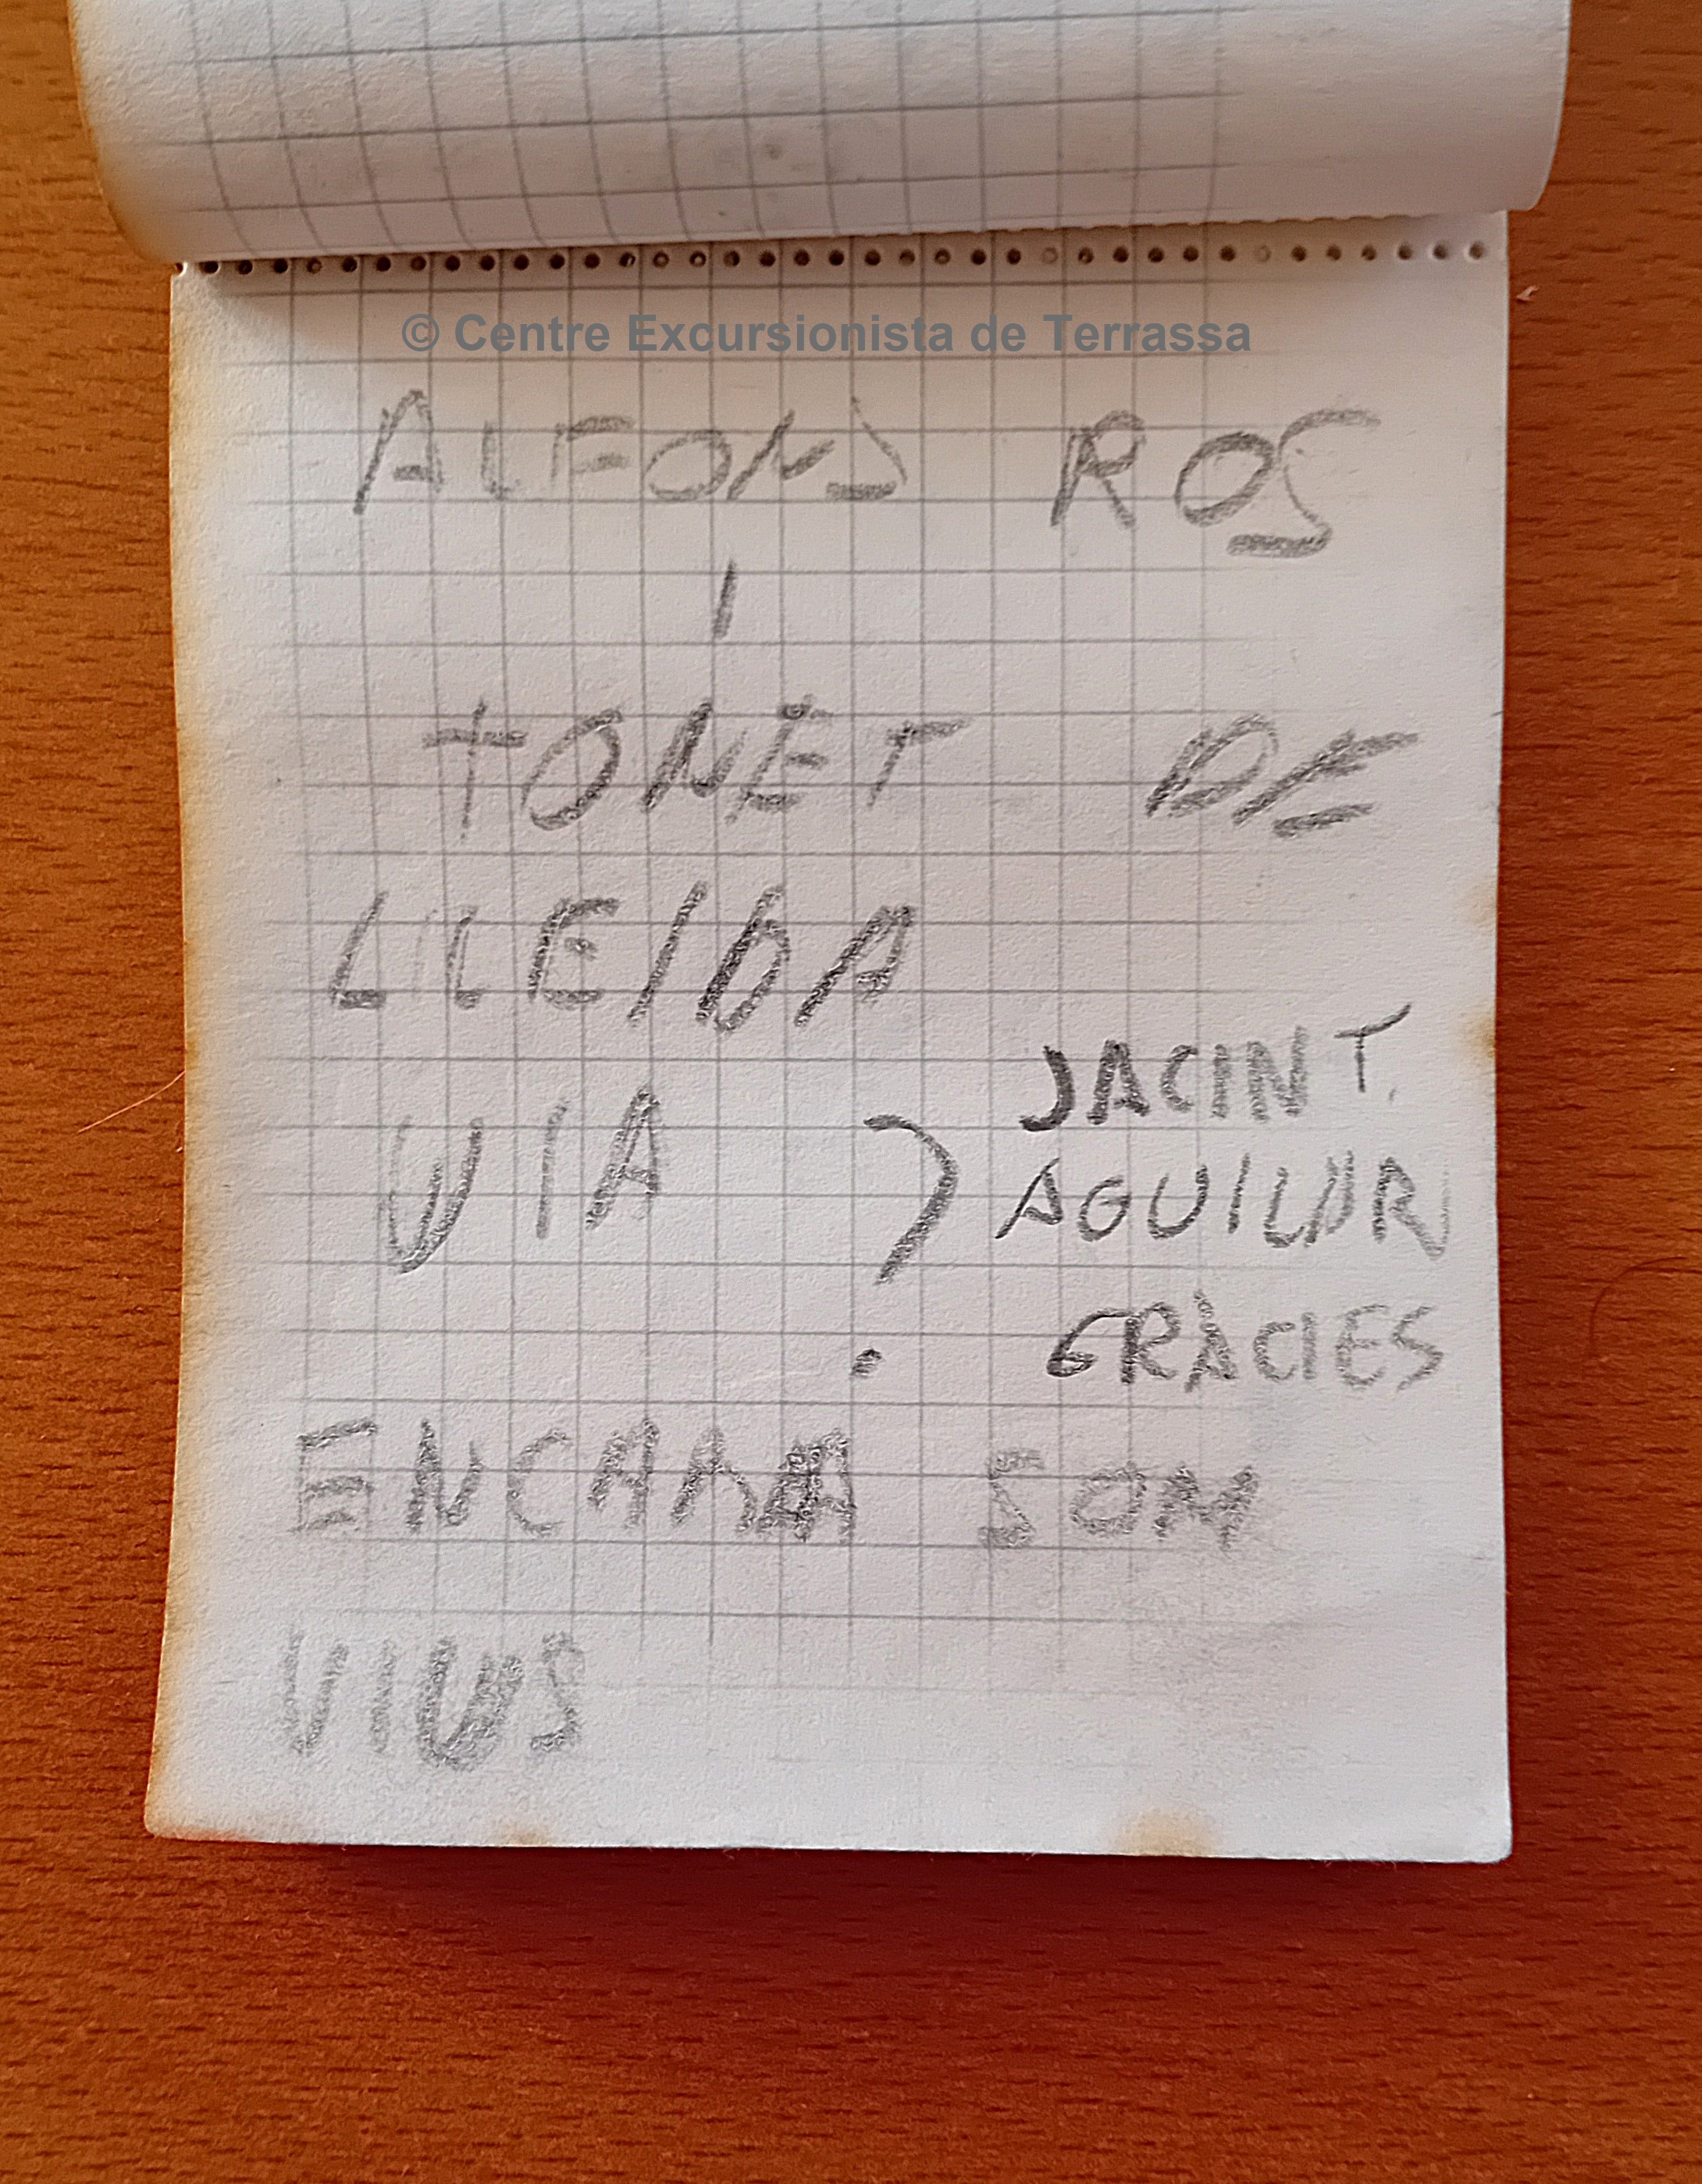 © Centre Excursionista de Terrassa
ALFONS ROS
I
TONET DE
LLEIDA
VIA ?
JACINT.
AGUILAR
GRÀCIES
ENCARA SOM
VIUS